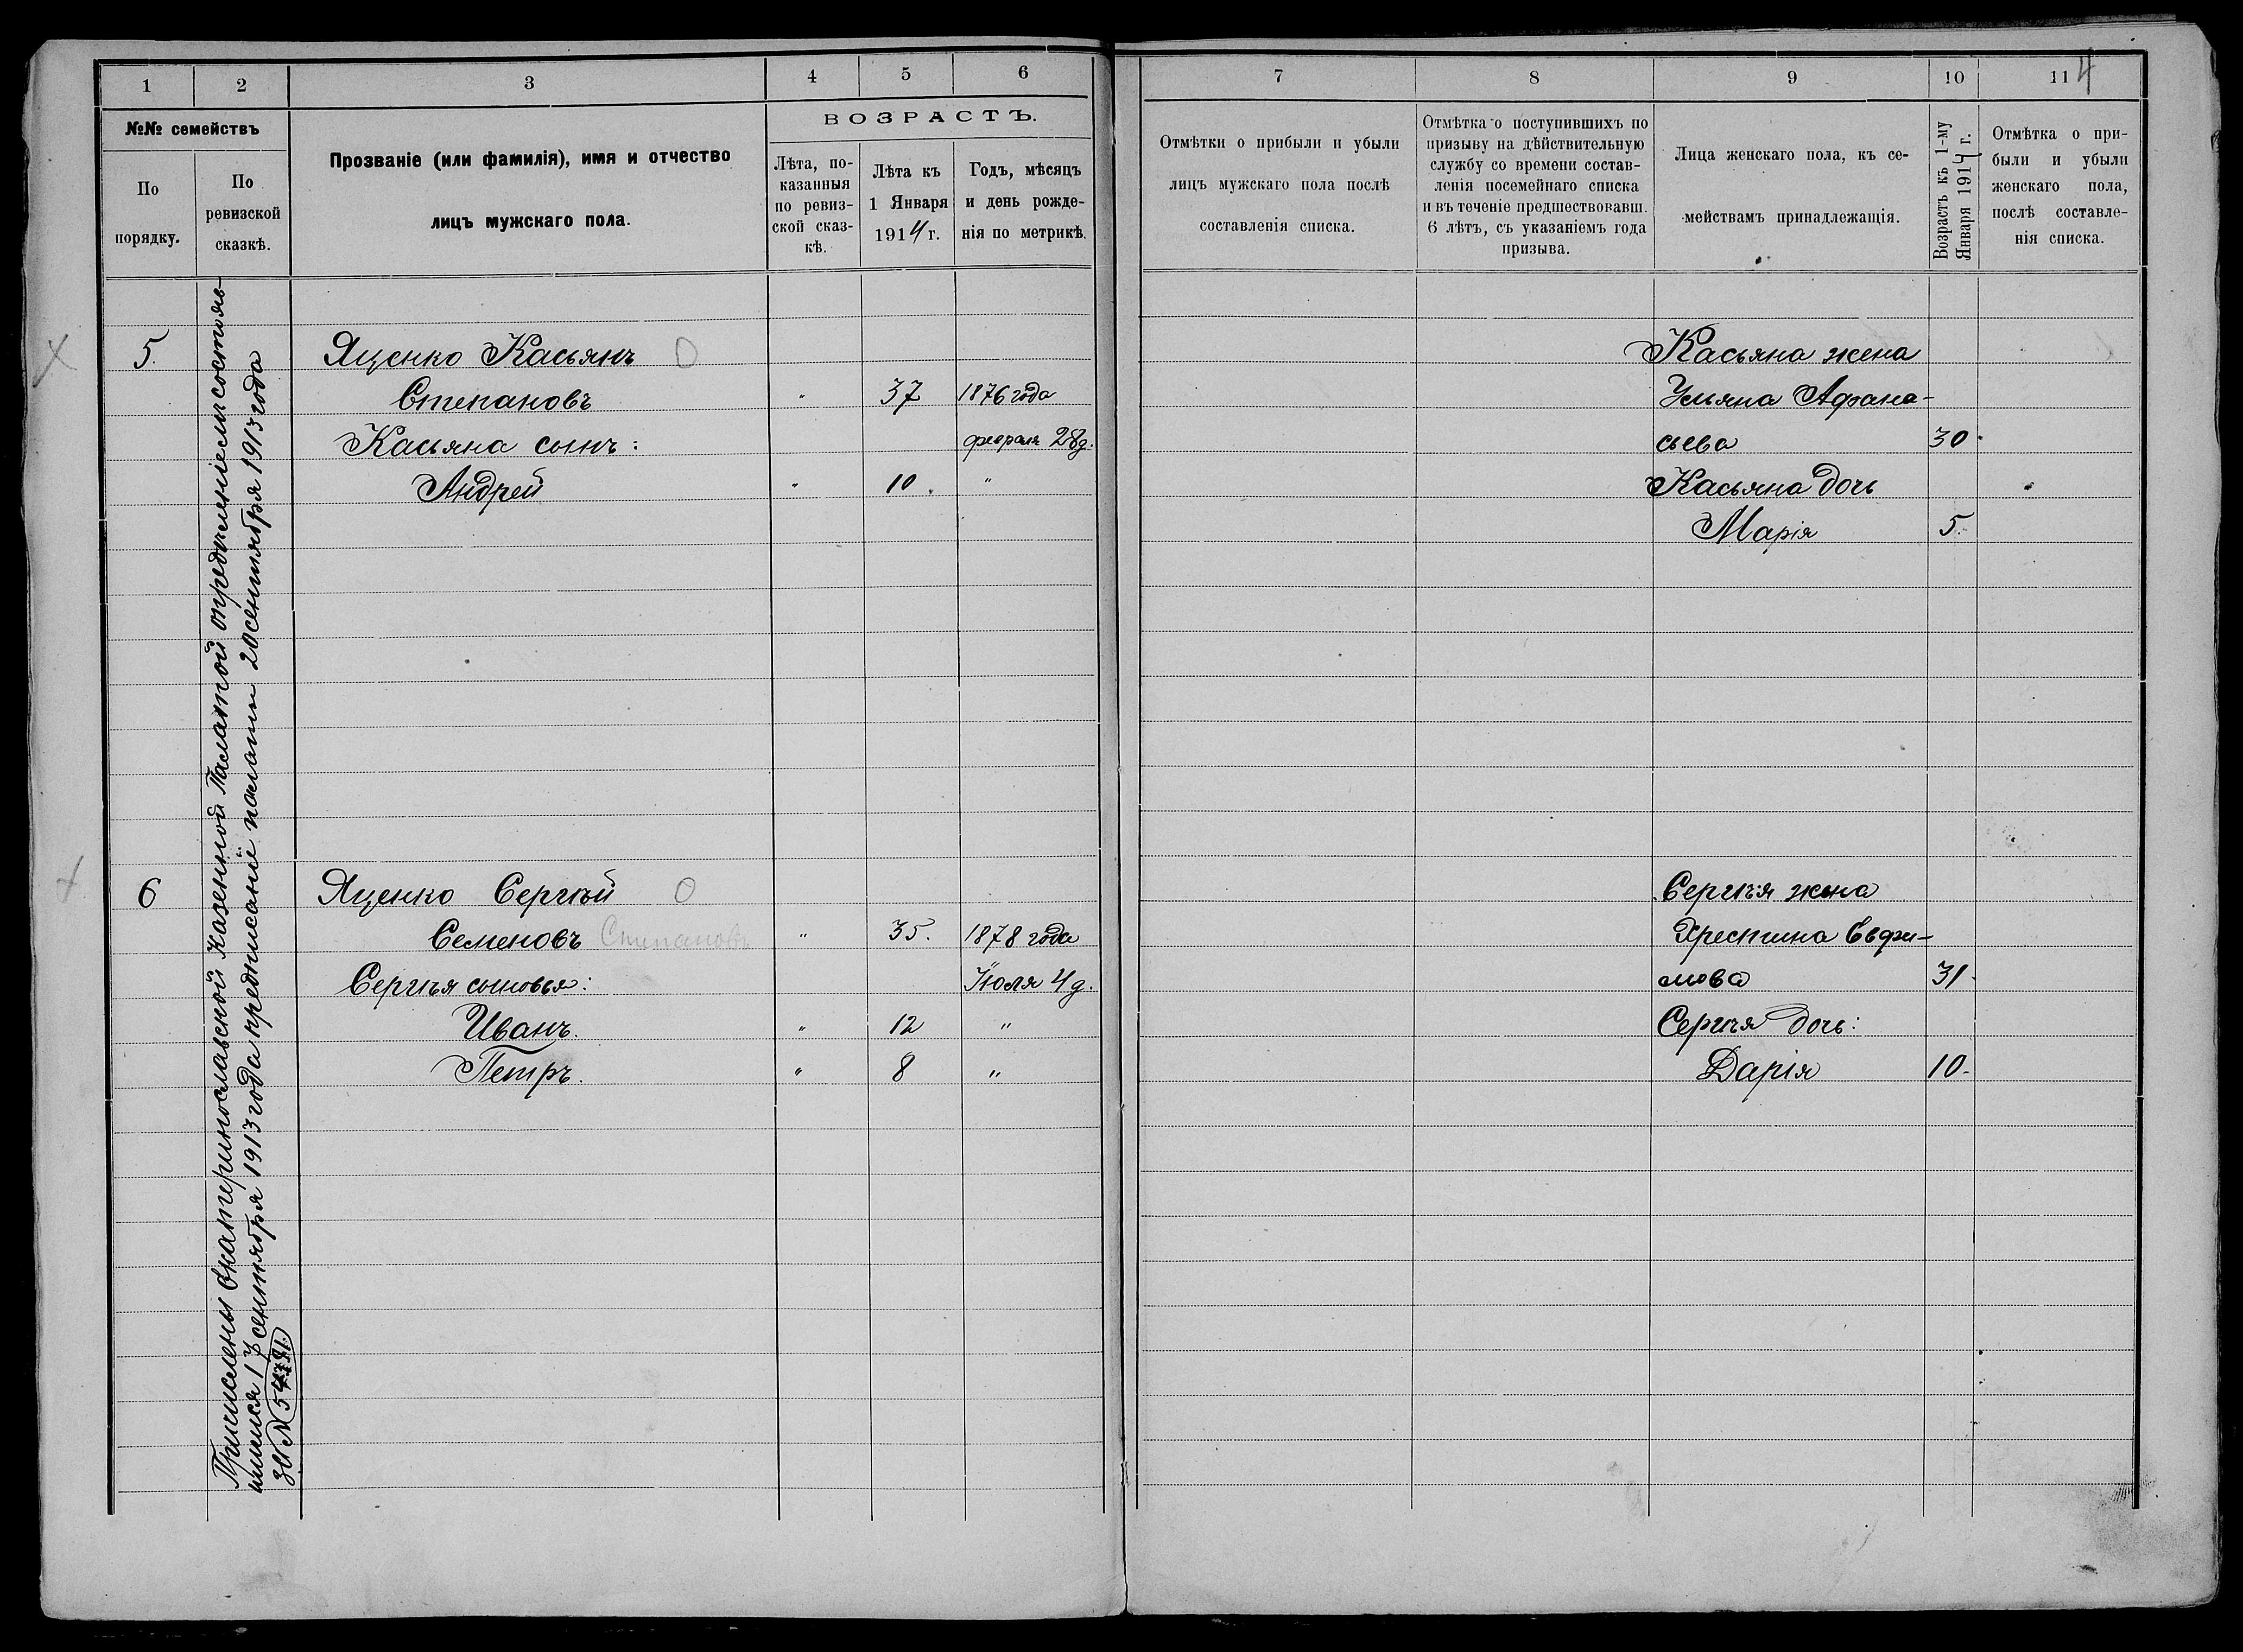 1 2 3 4 5 6
№№ семействъ
По порядку.
По ревизской сказкѣ.
Прозваніе (или фамилія), имя и отчество
лицъ мужскаго пола.
ВОЗРАСТЪ.
Лѣта, по-
казанныя
по ревиз-
ской сказ-
кѣ.
Лѣта къ
1 Января
1914 г.
Годъ, мѣсяцъ
и день рожде-
нія по метрикѣ.
Причислены Екатеринославской Казенной Палатой опредѣленіемъ состояв-
шимся 17 сентября 1913 года предписаніе палаты 20 сентября 1913 года
за №
5.
Яценко Касьянъ
Степановъ " 37 1876 года
Касьяна сынъ: февраля 28 д.
Андрей " 10. "
6
Яценко Сергѣй
Семеновъ Степановъ " 35. 1878 года
Сергѣя сыновья: Іюля 4 д.
Иванъ. " 12 "
Петръ. " 8 "
7 8 9 10 11 4
Отмѣтки о прибыли и убыли
лицъ мужскаго пола послѣ
составленія списка.
Отмѣтка о поступившихъ по
призыву на дѣйствительную
службу со времени состав-
ленія посемейнаго списка
и въ теченіе предшествовавш.
6 лѣтъ, съ указаніемъ года
призыва.
Лица женскаго пола, къ се-
мействамъ принадлежащія.
Возрастъ къ 1-му
Января 1914 г.
Отмѣтка о при-
были и убыли
женскаго пола,
послѣ составле-
нія списка.
Касьяна жена
Ульяна Афана-
сьева 30.
Касьяна дочь
Марія 5.
Сергѣя жена
Хрестина Евфи-
мова 31.
Сергѣя дочь:
Дарія 10.